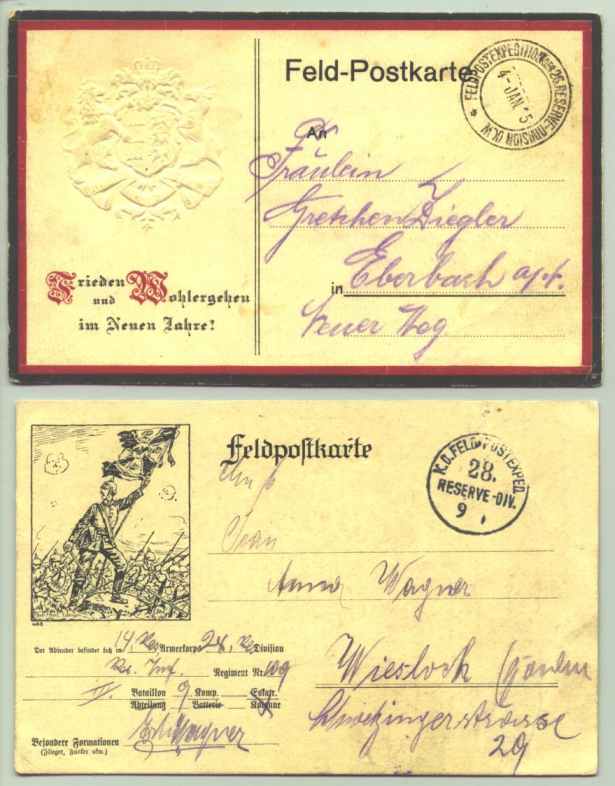 Feld-Postkarte
FELDPOSTEXPEDITION 26. RESERVE-DIVISION (K.W.)
4-JAN 15
An
Fräulein
Gretchen Ziegler
in Eberbach a/N.
Neuer Weg
Frieden und Wohlergehen
im Neuen Jahre!
Feldpostkarte
K.D.FELD-POSTEXPED.
28.
RESERVE-DIV.
9
An
Frau
Anna Wagner
Wiesloch (Baden
Schwetzingerstrasse
29
Der Absender befindet sich im 14 Res Armeekorps 28. Res Division
Res. Inf. Regiment Nr. 109
Bataillon 9. Komp. Eskadr.
Abteilung Batterie Kolonne
Wagner
Besondere Formationen
(Flieger, Funker usw.)